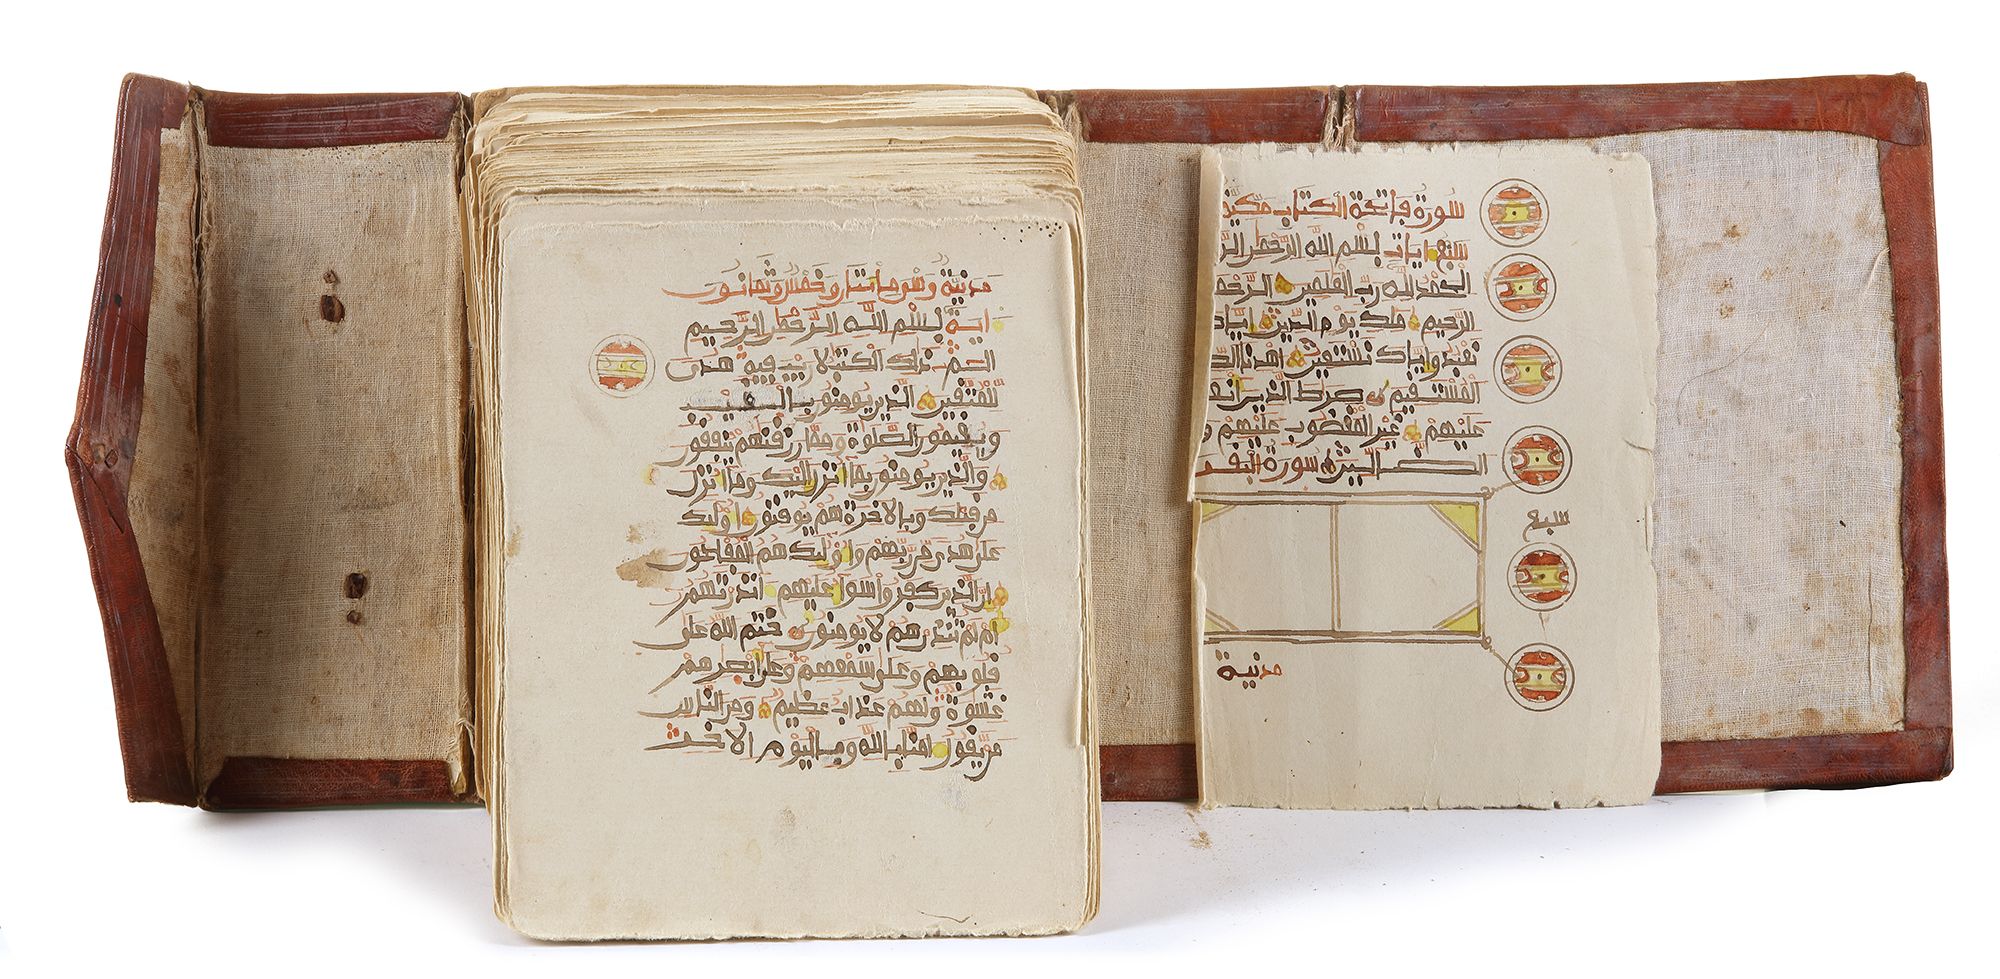 سورة فاتحة الكتاب
سبع ايات بسم الله الرحمن
الحمد لله رب العلمين
الرحيم ملك يوم الدين
نعبد واياك نستعين اهدنا
المستقيم صرط الذين
عليهم غير المغضوب عليهم و
الضالين سورة
سبع
مدنية
مدنية وخمس وثمانون
اية بسم الله الرحمن الرحيم
الم ذلك الكتب لا ريب فيه هدى
للمتقين الذين يومنون بالغيب
ويقيمون الصلوة ومما رزقنهم ينفقون
والذين يومنون بما انزل اليك وما انزل
من قبلك وبالاخرة هم يوقنون اولئك
على هدى من ربهم واولئك هم المفلحون
ان الذين كفروا سوا عليهم انذرتهم
ام لم تنذرهم لا يومنون ختم الله على
قلوبهم وعلى سمعهم وعلى ابصرهم
غشوة ولهم عذاب عظيم ومن الناس
من يقول امنا بالله وباليوم الاخر